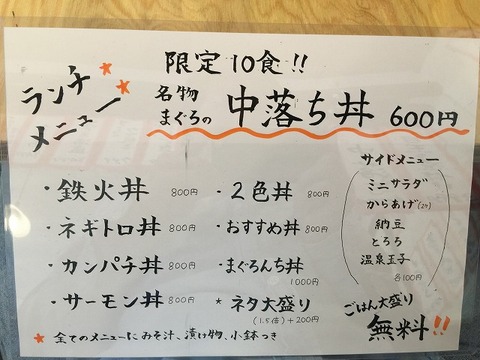 ランチ
メニュー
限定10食!!
名物
まぐろの
中落ち丼 600円
・鉄火丼 800円
・ネギトロ丼 800円
・カンパチ丼 800円
・サーモン丼 800円
・2色丼 800円
・おすすめ丼 800円
・まぐろんち丼
1000円
* ネタ大盛り
(1.5倍)+200円
サイドメニュー
ミニサラダ
からあげ(2ケ)
納豆
とろろ
温泉玉子
各100円
ごはん大盛り
無料!!
★ 全てのメニューにみそ汁、漬け物、小鉢つき